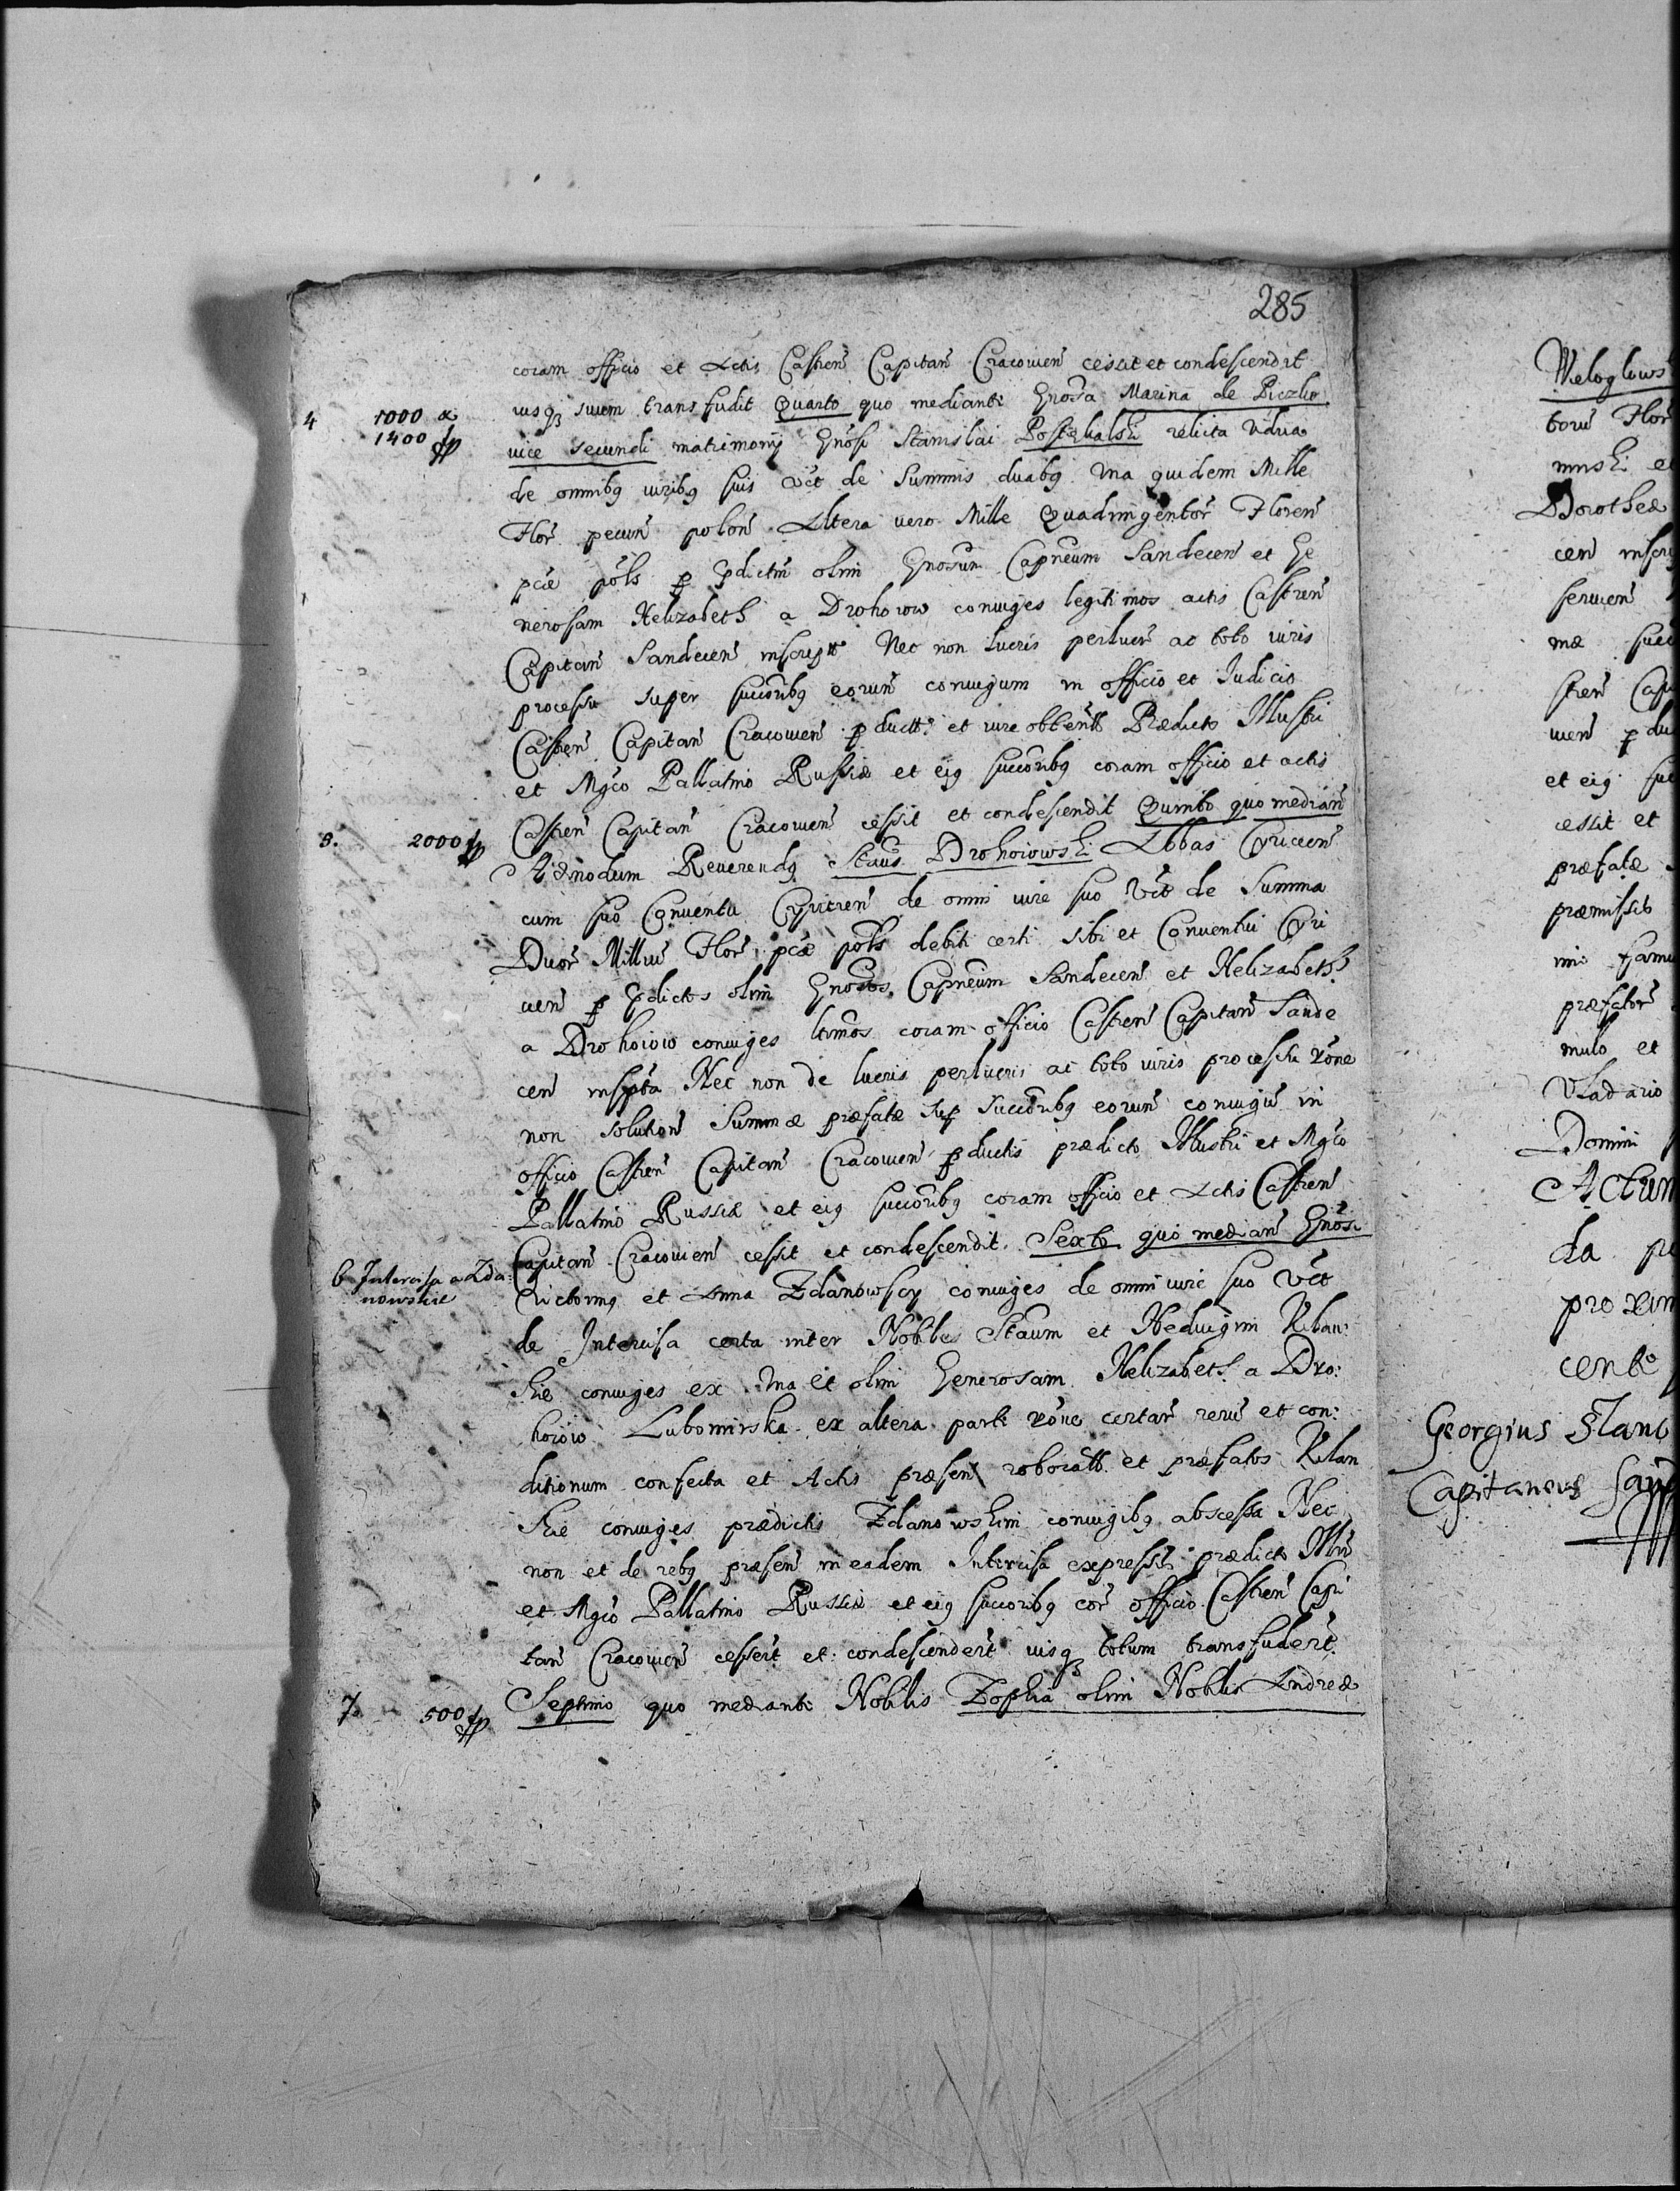 285
coram officio et Actis Castreñ Capitañ Cracovieñ cessit et condescendit
iusq3 suum transfudit Quarto quo mediante Gnosa Marina de Piczlin
4 1000 &
1400 fp
vice secundi matrimonÿ Gnosi Stanislai Postękalski relicta Vidua
de omnibq iuribq suis vĉt de Summis duabq Vna quidem Mille
Flor pecuñ poloñ Altera vero Mille Quadringentor Floreñ
pcúe pols p pdictm olim Gnosum Capneum Sandeceñ et Ge
nerosam Helizabeth a Drohoiow coniuges legitimos actis Castreñ
Capitañ Sandeceñ inscriptt Nec non lucris perlucr ac toto iuris
processu super succoribq eorum coniugum in officio et Judicio
Castreñ Capitañ Cracovieñ pductt: et iure obtentt Prædicto Illustri
et Mgco Pallatino Russiæ et eiq succoribq coram officio et actis
Castreñ Capitañ Cracovieñ cessit et condescendit Quinto quo mediañ
5. 2000 fp
Admodum Reverendq Staus Drohoiowski Abbas Cyricieñ
cum suo Conventu Cyricieñ de omni iure suo Vĉt de Summa
Duor Milliũ Flor pcúe pols debiti certi sibi et Conventui Cyri
cieñ p pdictos olim Gnosos Capneum Sandeceñ et Helizabeth
a Drohoioio coniuges ltimos coram officio Castreñ Capitañ Sande
ceñ inspta Nec non de lucris perlucris ac toto iuris processu rone
non solutioñ Summæ præfatæ sup succoribq eorum coniugũ in
officio Castreñ Capitañ Cracovieñ pductis prædicto Illustri et Mgco
Pallatino Russiæ et eiq succoribq coram officio et Actis Castreñ
Capitañ Cracovieñ cessit et condescendit. Sexto quo mediañ Gnosi
6 Intercisa a Zda:
nowskie
Victoring et Anna Zdanowscy coniuges de omni iure suo Vĉt
de Intercisa certa inter Nobiles Staum et Heduigim Kilan:
skie coniuges ex Vna et olim Generosam Helizabeth a Dro:
hoioio Lubomirska ex altera parti rone certar rerũ et con:
ditionum confecta et Actis præsen roboratt et præfatos Kilan
skie coniuges prædictis Zdanowskim coniugibq abscessa Nec
non et de rebq præseñ in eadem Intercisa expressis prædicto Illri
et Mgco Pallatino Russiæ et eiq succoribq cor officio Castreñ Capi
tañ Cracovieñ cessert et condescendert iusq3 totum transfudert
7. 500 fp
Septimo quo mediante Nobilis Zophia olim Nobilis Andreæ
Weloglows
torũ Flor
Dorotheæ
ceñ inscri
serueñ
mæ succ
streñ Capi
uieñ p du
et eiq suc
cessit et
præfatæ
præmissis
præfator
mulo et
Vladario
Domini
Actum
da
proxim
cente
Georgius Stani
Capitaneus San